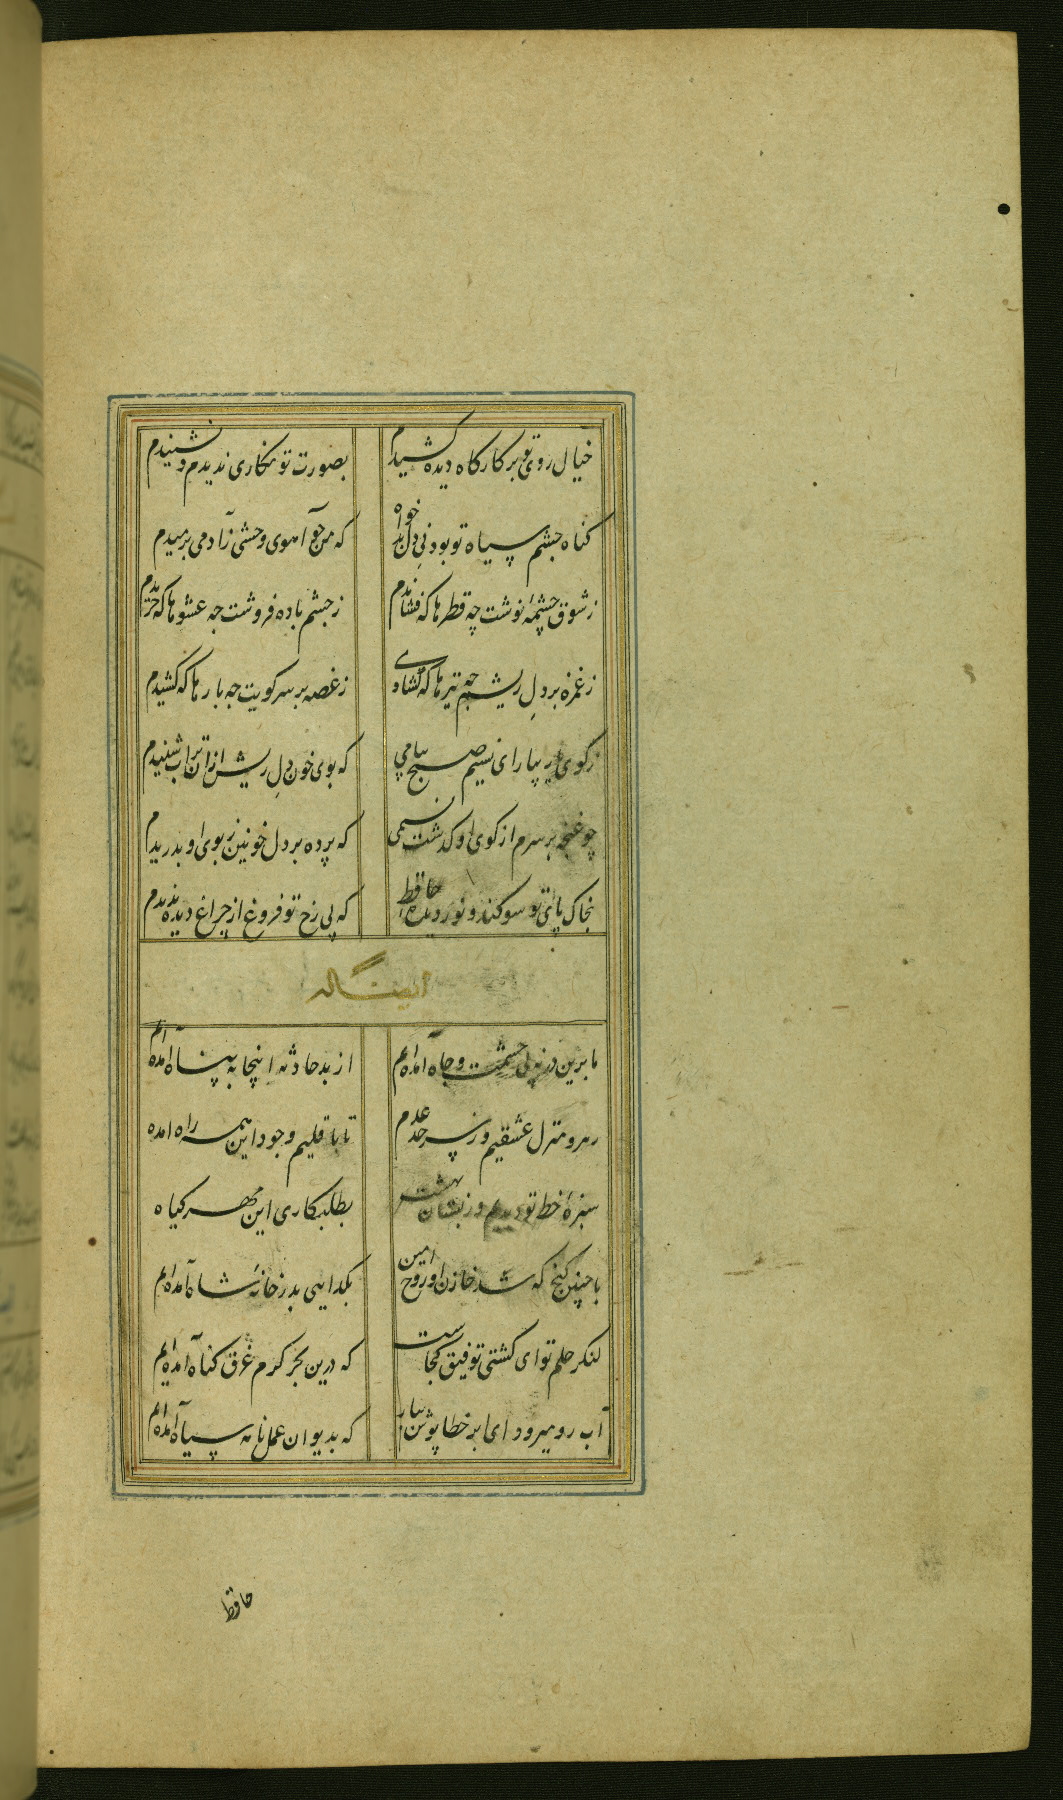 خیال روی تو بر کارکاه دیده کشیدم بصورت تو نکاری ندیدم و نشنیدم
کناه چشم سیاه تو بود نی دل بدخواه که من چو آهوی وحشی ز آدمی برمیدم
ز شوق چشمهٔ نوشت چه قطرها که فشاندم ز چشم باده فروشت چه عشوها که خریدم
ز غمزه بر دل ریشم چه تیرها که کشادی ز غصه بر سر کویت چه بارها که کشیدم
ز کوی یار بیار ای نسیم صبح پیامی که بوی خون دل ریش از ان تراب شنیدم
چو غنچه بر سرم از کوی او کذشت نسیمی که پرده بر دل خونین ز بوی او بدریدم
بخاک پای تو سوکند و نور دیده حافظ که بی رخ تو فروغ از چراغ دیده ندیدم
ایضا له
ما برین در نه پی حشمت و جاه آمده‌ایم از بد حادثه اینجا به پناه آمده‌ایم
رهرو منزل عشقیم و ز سرحد عدم تا باقلیم وجود این همه راه امده
سبزهٔ خط تو دیدیم و ز بستان بهشت بطلبکاری این مهر کیاه
با چنین کنج که شد خازن او روح امین بکدایی بدر خانهٔ شاه آمده‌ایم
لنکر حلم تو ای کشتی توفیق کجاست که درین بحر کرم غرق کناه آمده‌ایم
آب رو میرود ای ابر خطاپوش ببار که بدیوان عمل نامه سیاه آمده‌ایم
حافظ